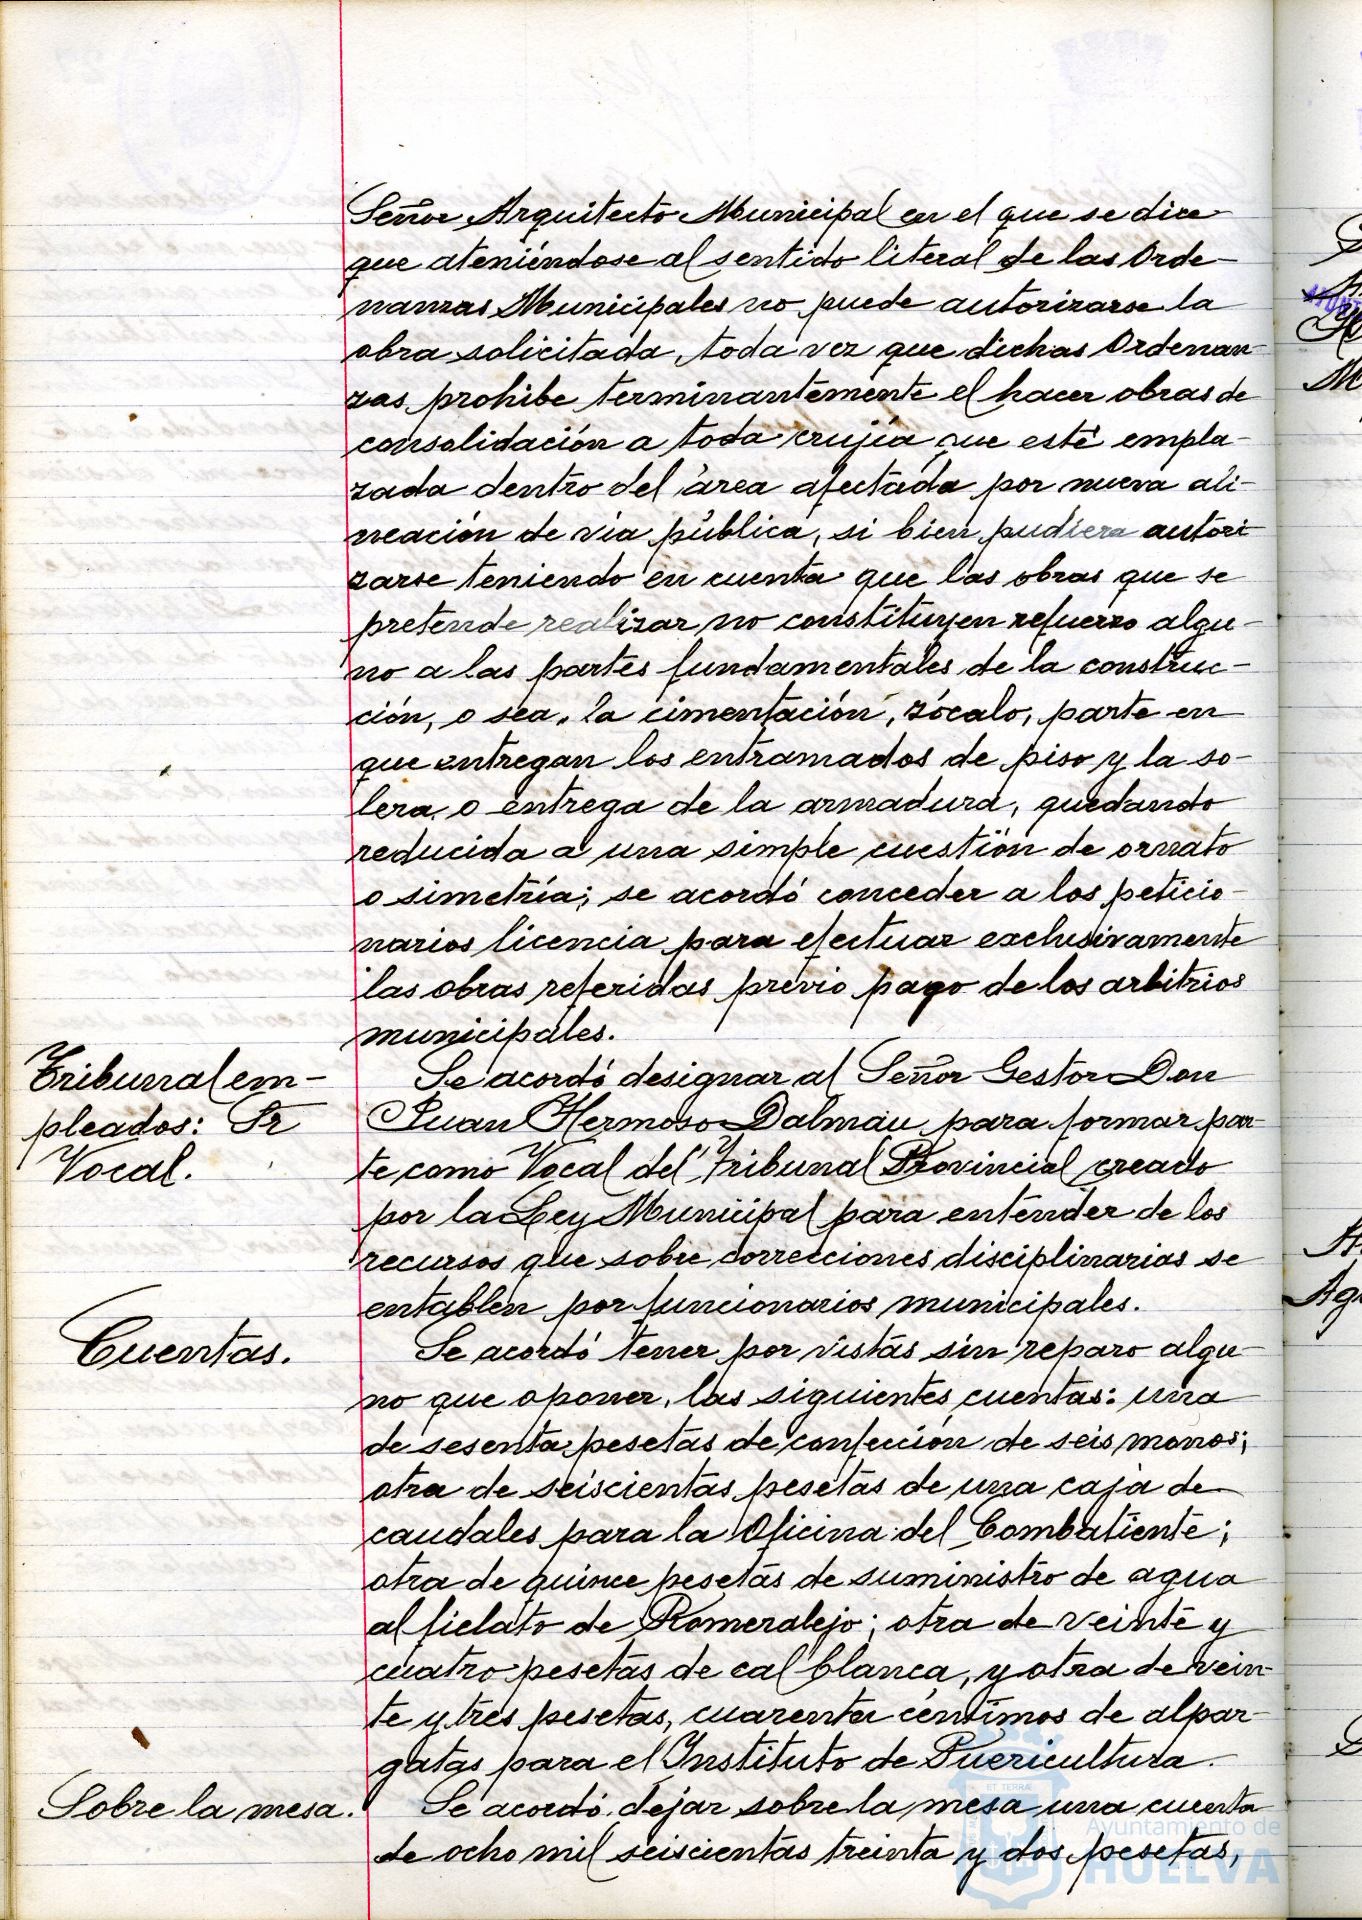 Señor Arquitecto Municipal en el que se dice
que ateniéndose al sentido literal de las Orde-
nanzas Municipales no puede autorizarse la
obra solicitada, toda vez que dichas Ordenan-
zas prohibe terminantemente el hacer obras de
consolidación a toda crujía que esté empla-
zada dentro del área afectada por nueva ali-
neación de vía pública, si bien pudiera autori-
zarse teniendo en cuenta que las obras que se
pretende realizar no constituyen refuerzo algu-
no a las partes fundamentales de la construc-
ción, o sea, la cimentación, zócalo, parte en
que entregan los entramados de piso y la so-
lera o entrega de la armadura, quedando
reducida a una simple cuestión de ornato
o simetría; se acordó conceder a los peticio-
narios licencia para efectuar exclusivamente
las obras referidas previo pago de los arbitrios
municipales.
Tribunal em-
pleados: Sr
Vocal.
Se acordó designar al Señor Gestor Don
Juan Hermoso Dalmau para formar par-
te como Vocal del Tribunal Provincial creado
por la Ley Municipal para entender de los
recursos que sobre correcciones disciplinarias se
entablen por funcionarios municipales.
Cuentas.
Se acordó tener por vistas sin reparo algu-
no que oponer, las siguientes cuentas: una
de sesenta pesetas de confección de seis monos;
otra de seiscientas pesetas de una caja de
caudales para la Oficina del Combatiente;
otra de quince pesetas de suministro de agua
al fielato de Romeralejo; otra de veinte y
cuatro pesetas de cal blanca, y otra de vein-
te y tres pesetas, cuarenta céntimos de alpar-
gatas para el Instituto de Puericultura.
Sobre la mesa.
Se acordó dejar sobre la mesa una cuenta
de ocho mil seiscientas treinta y dos pesetas,
Ayuntamiento de
HUELVA